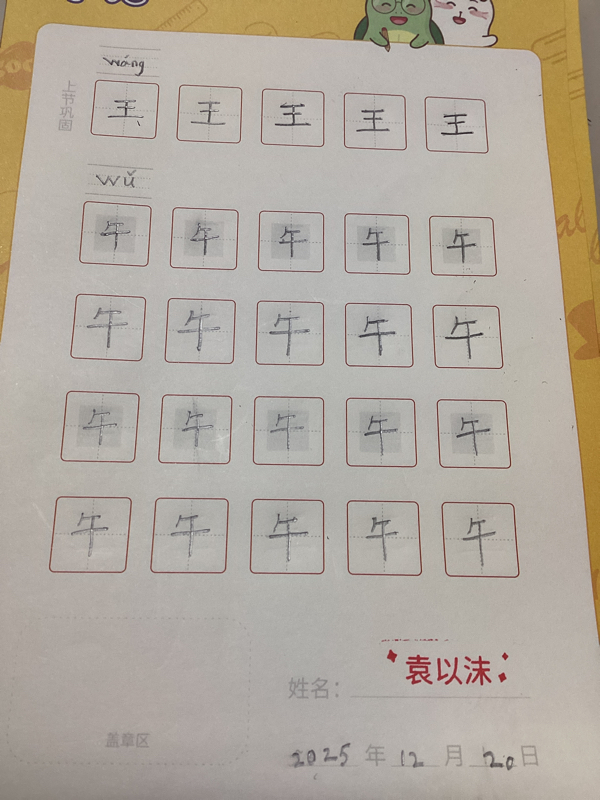 wáng
上节巩固
王 王 王 王 王
wǔ
午 午 午 午 午
午 午 午 午 午
午 午 午 午 午
午 午 午 午 午
姓名: 袁以沫
盖章区
2025 年 12 月 20 日